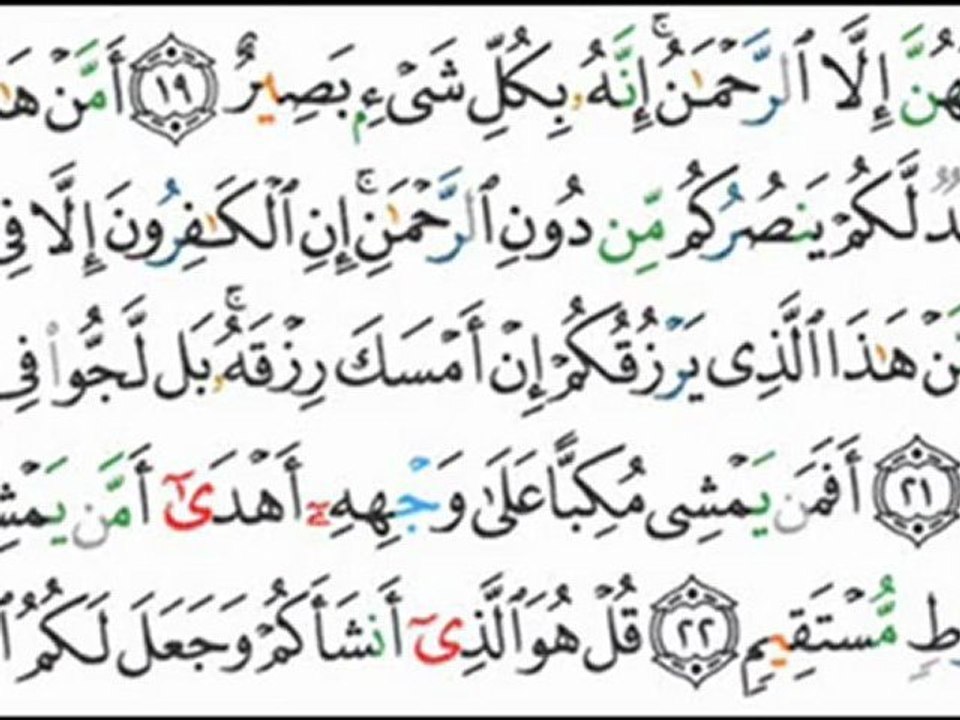 إِلَّا ٱلرَّحْمَـٰنُ ۚ إِنَّهُۥ بِكُلِّ شَىْءٍۭ بَصِيرٌ ١٩ أَمَّنْ
لَّكُمْ يَنصُرُكُم مِّن دُونِ ٱلرَّحْمَـٰنِ ۚ إِنِ ٱلْكَـٰفِرُونَ إِلَّا فِى
هَـٰذَا ٱلَّذِى يَرْزُقُكُمْ إِنْ أَمْسَكَ رِزْقَهُۥ ۚ بَل لَّجُّوا۟ فِى
٢١ أَفَمَن يَمْشِى مُكِبًّا عَلَىٰ وَجْهِهِۦٓ أَهْدَىٰٓ أَمَّن
مُّسْتَقِيمٍ ٢٢ قُلْ هُوَ ٱلَّذِىٓ أَنشَأَكُمْ وَجَعَلَ لَكُمُ